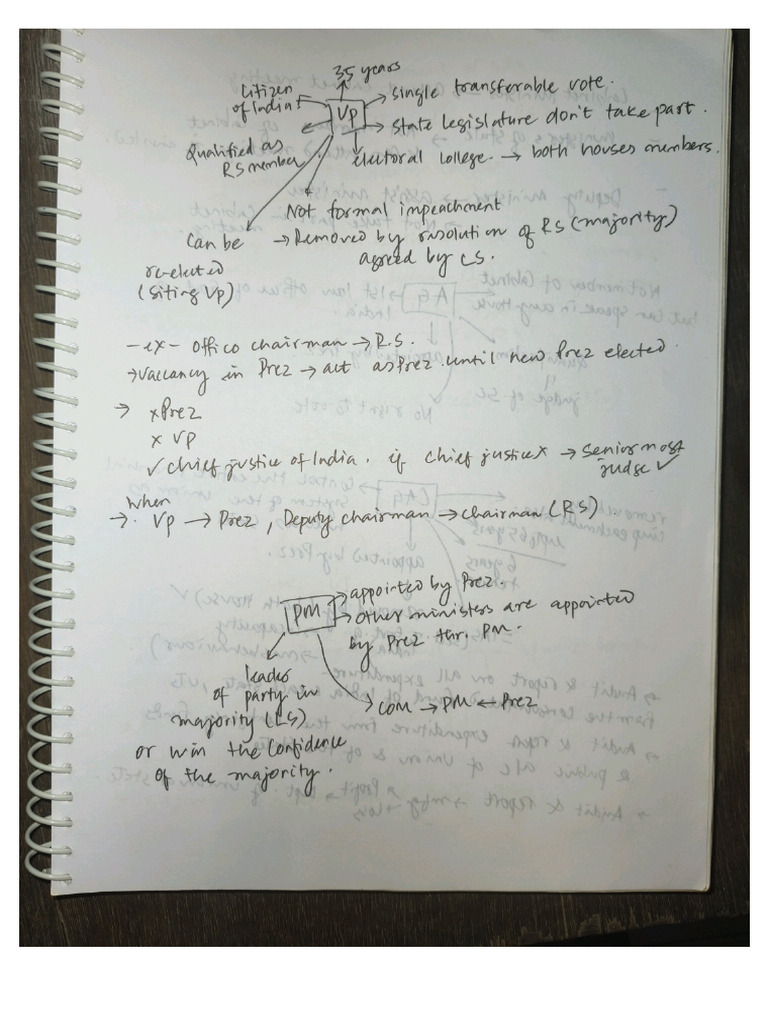 35 years
Citizen
of India
VP
single transferable vote.
state legislature don't take part.
Qualified as
RS member
electoral college. → both houses members.
Not formal impeachment
→ Removed by resolution of RS (majority)
agreed by LS.
Can be
re-elected
(Siting VP)
- ex - Offico chairman → R.S.
→ Vaccancy in Prez → act as Prez. until new Prez elected.
→ x Prez
x VP
✓ chief justice of India. if chief justice x → senior most
judge ✓
when
→. VP → Prez, Deputy chairman → chairman (RS)
PM
→ appointed by Prez.
→ other ministers are appointed
by Prez thr. PM.
leader
of party in
majority (LS)
or win the confidence
of the majority.
COM → PM ← Prez